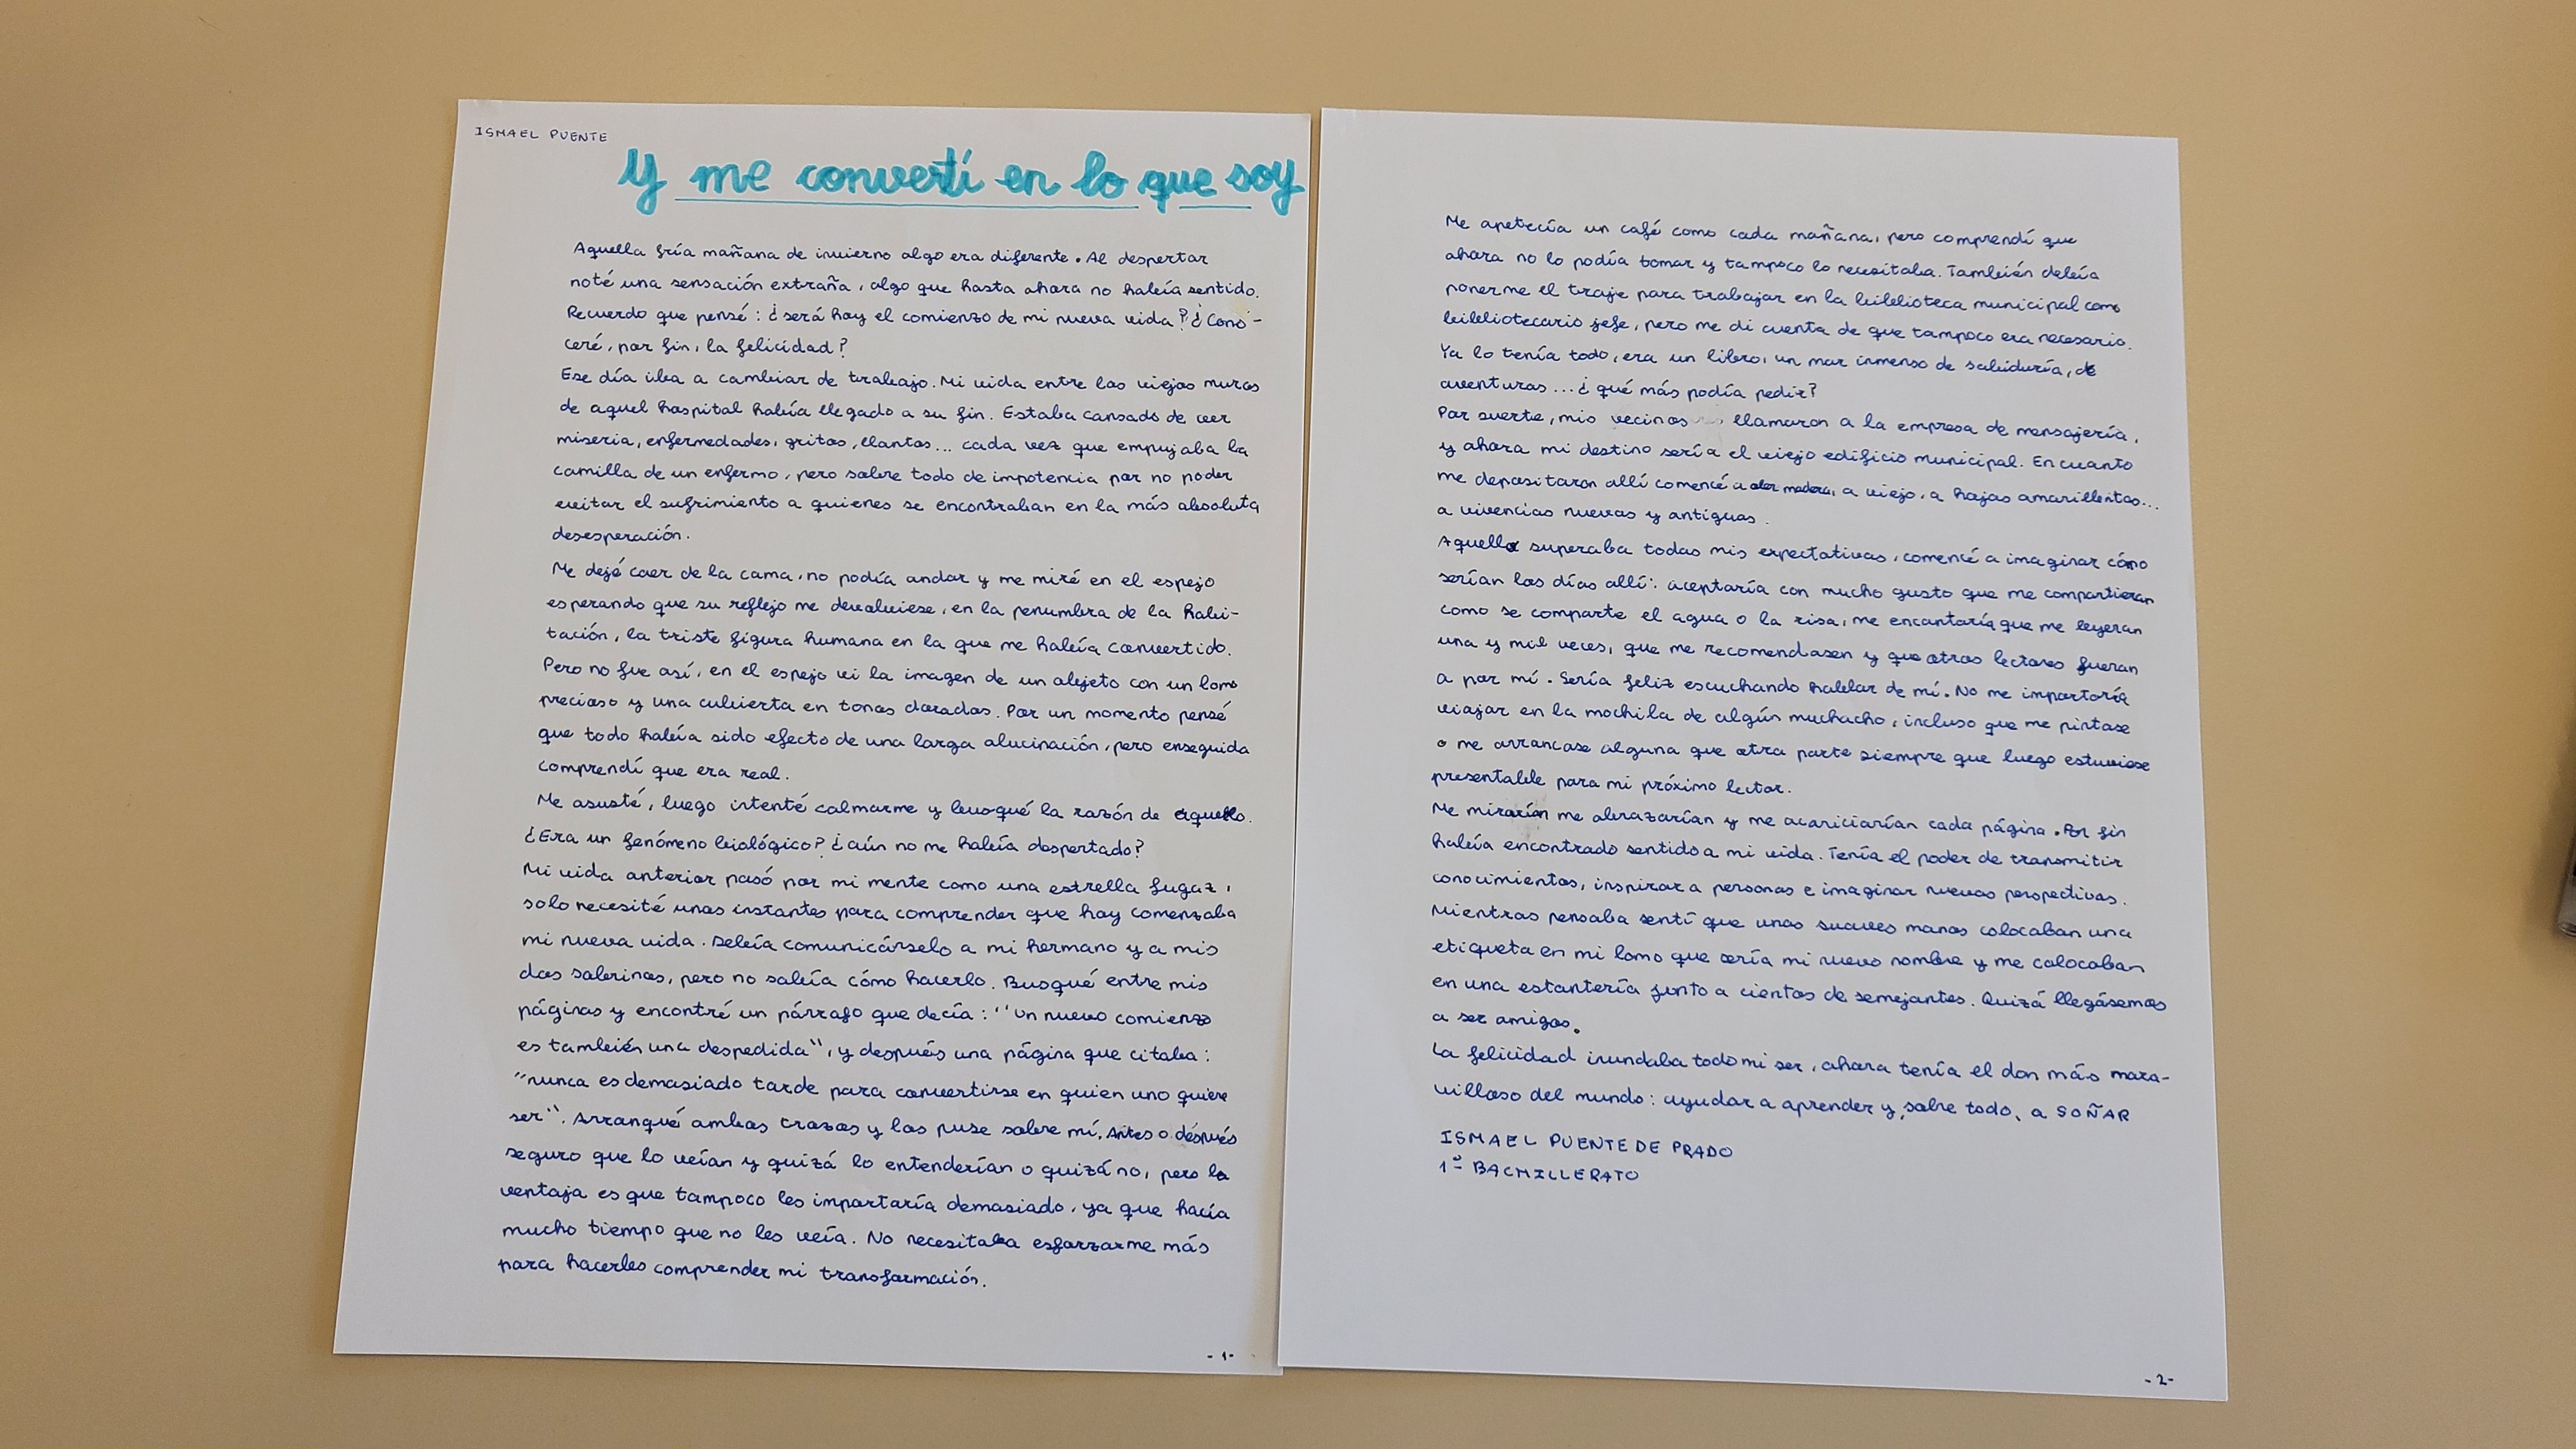 ISMAEL PUENTE
Y me convertí en lo que soy
Aquella fría mañana de invierno algo era diferente. Al despertar
noté una sensación extraña, algo que hasta ahora no había sentido.
Recuerdo que pensé: ¿será hoy el comienzo de mi nueva vida? ¿Cono-
ceré, por fin, la felicidad?
Ese día iba a cambiar de trabajo. Mi vida entre los viejos muros
de aquel hospital había llegado a su fin. Estaba cansado de ver
miseria, enfermedades, gritos, llantos... cada vez que empujaba la
camilla de un enfermo, pero sobre todo de impotencia por no poder
evitar el sufrimiento a quienes se encontraban en la más absoluta
desesperación.
Me dejé caer de la cama, no podía andar y me miré en el espejo
esperando que su reflejo me devolviese, en la penumbra de la habi-
tación, la triste figura humana en la que me había convertido.
Pero no fue así, en el espejo vi la imagen de un objeto con un lomo
precioso y una cubierta en tonos dorados. Por un momento pensé
que todo había sido efecto de una larga alucinación, pero enseguida
comprendí que era real.
Me asusté, luego intenté calmarme y busqué la razón de aquello.
¿Era un fenómeno biológico? ¿aún no me había despertado?
Mi vida anterior pasó por mi mente como una estrella fugaz,
solo necesité unos instantes para comprender que hoy comenzaba
mi nueva vida. Debía comunicárselo a mi hermano y a mis
dos sobrinos, pero no sabía cómo hacerlo. Busqué entre mis
páginas y encontré un párrafo que decía: "un nuevo comienzo
es también una despedida", y después una página que citaba:
"nunca es demasiado tarde para convertirse en quien uno quiere
ser". Arranqué ambos trozos y los puse sobre mí. Antes o después
seguro que lo veían y quizá lo entenderían o quizá no, pero la
ventaja es que tampoco les importaría demasiado, ya que hacía
mucho tiempo que no les veía. No necesitaba esforzarme más
para hacerles comprender mi transformación.
-1-
Me apetecía un café como cada mañana, pero comprendí que
ahora no lo podía tomar y tampoco lo necesitaba. También debía
ponerme el traje para trabajar en la biblioteca municipal como
bibliotecario jefe, pero me di cuenta de que tampoco era necesario.
Ya lo tenía todo, era un libro, un mar inmenso de sabiduría, de
aventuras... ¿qué más podía pedir?
Por suerte, mis vecinos llamaron a la empresa de mensajería,
y ahora mi destino sería el viejo edificio municipal. En cuanto
me depositaron allí comencé a oler madera, a viejo, a hojas amarillentas...
a vivencias nuevas y antiguas.
Aquello superaba todas mis expectativas, comencé a imaginar cómo
serían los días allí: aceptaría con mucho gusto que me compartieran
como se comparte el agua o la risa, me encantaría que me leyeran
una y mil veces, que me recomendasen y que otros lectores fueran
a por mí. Sería feliz escuchando hablar de mí. No me importaría
viajar en la mochila de algún muchacho, incluso que me pintase
o me arrancase alguna que otra parte siempre que luego estuviese
presentable para mi próximo lector.
Me mirarían me abrazarían y me acariciarían cada página. Por fin
había encontrado sentido a mi vida. Tenía el poder de transmitir
conocimientos, inspirar a personas e imaginar nuevas perspectivas.
Mientras pensaba sentí que unas suaves manos colocaban una
etiqueta en mi lomo que sería mi nuevo nombre y me colocaban
en una estantería junto a cientos de semejantes. Quizá llegásemos
a ser amigos.
La felicidad inundaba todo mi ser, ahora tenía el don más mara-
villoso del mundo: ayudar a aprender y, sobre todo, a SOÑAR
ISMAEL PUENTE DE PRADO
1º BACHILLERATO
-2-